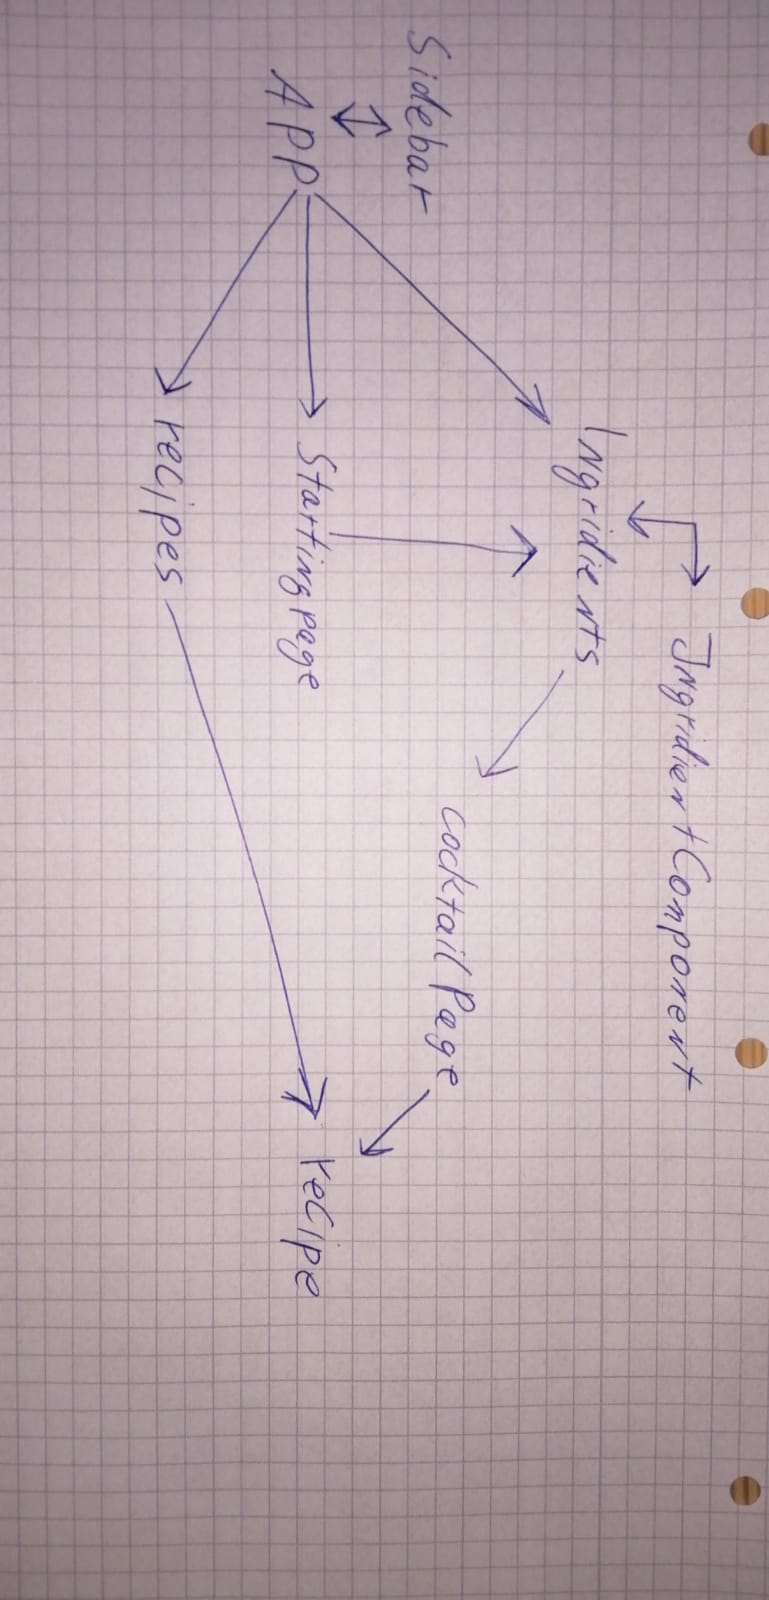 IngridientComponent
Ingridients
cocktailPage
Sidebar
APP
Startingpage
recipe
recipes